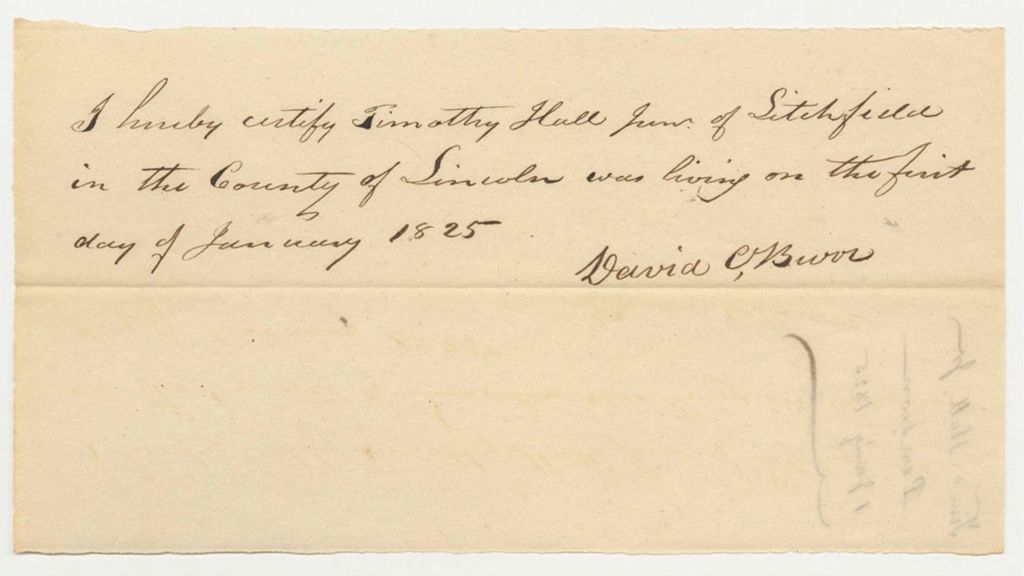 I hereby certify Timothy Hall Junr. of Litchfield
in the County of Lincoln was living on the first
day of January 1825
David C,